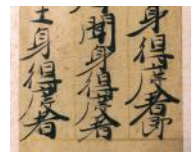 身得度者即
聞身得度者
士身得度者